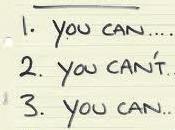 1. YOU CAN....
2. YOU CAN'T..
3. YOU CAN..